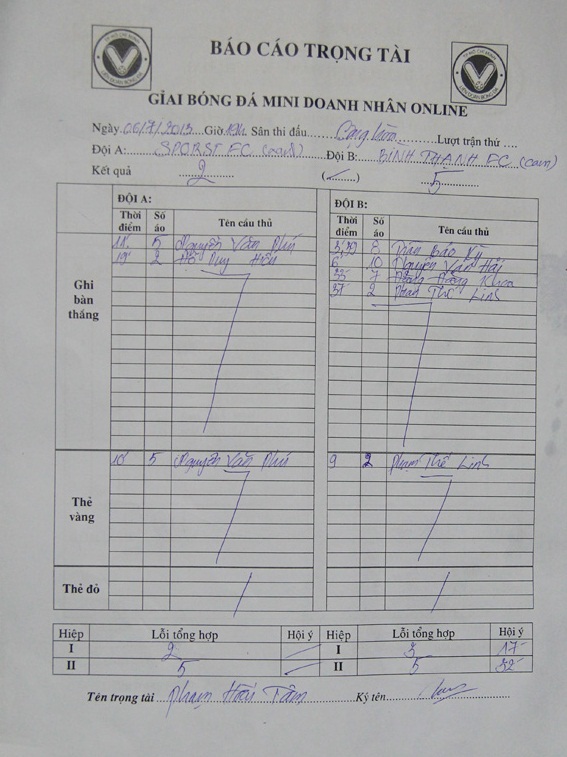 BÁO CÁO TRỌNG TÀI
GIẢI BÓNG ĐÁ MINI DOANH NHÂN ONLINE
Ngày 06/7/2013 Giờ 19h Sân thi đấu Lượt trận thứ
Đội A: SPORST FC Đội B: BINH THANH FC (cam)
Kết quả 2 5
ĐỘI A: ĐỘI B:
Thời điểm Số áo Tên cầu thủ Thời điểm Số áo Tên cầu thủ
Ghi bàn thắng
18 5 Nguyễn Văn Phú 8 Trần Bảo Kỳ
19 2 Đỗ Duy Hiếu 6 10 Nguyễn Văn Hải
35 7 Khoa
37 2 Phạm Thế Linh
Thẻ vàng
5 Nguyễn Văn Phú 9 2 Phạm Thế Linh
Thẻ đỏ
Hiệp Lỗi tổng hợp Hội ý Hiệp Lỗi tổng hợp Hội ý
I 2 I 3 17
II 5 II 5 32
Tên trọng tài Phạm Hữu Tâm Ký tên